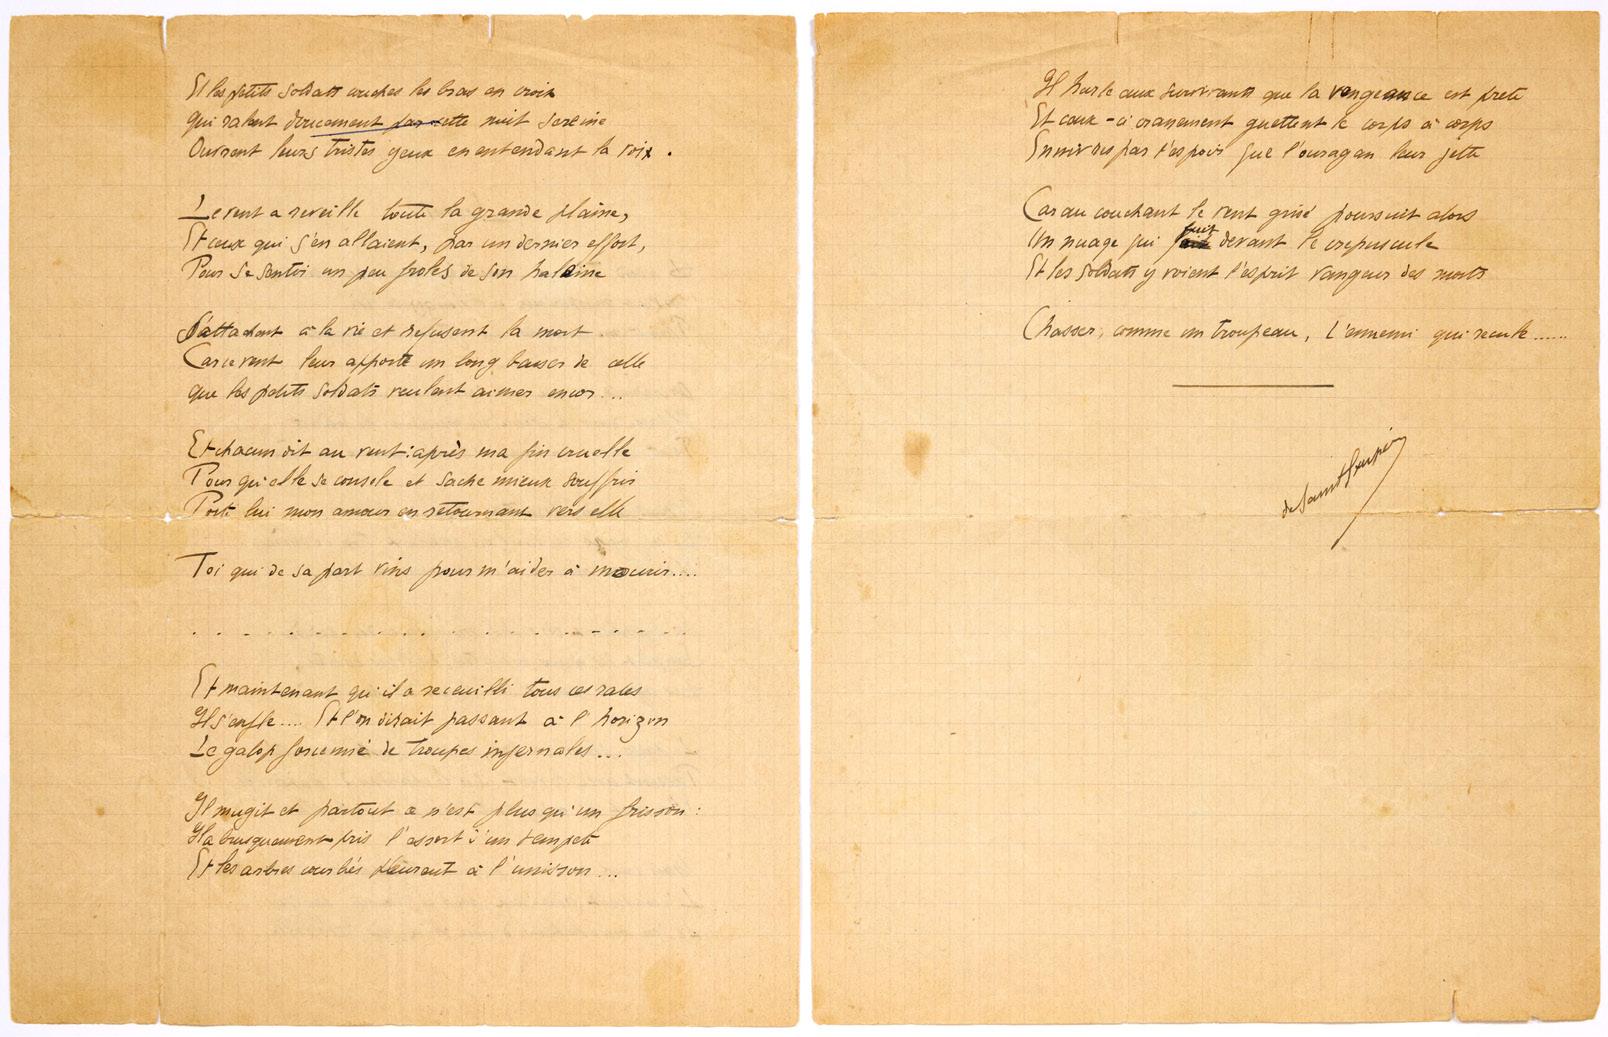 Et les petits soldats couchés les bras en croix
qui ralent doucement par cette nuit sereine
Ouvrent leurs tristes yeux en entendant la voix.
Le vent a reveillé toute la grande plaine,
Et ceux qui s'en allaient, par un dernier effort,
Pour se sentir un peu frolés de son haleine
S'attachent à la vie et refusent la mort.
Car ce vent leur apporte un long baiser de celle
que les petits soldats veulent aimer encor...
Et chacun dit au vent : après ma fin cruelle
Pour qu'elle se console et sache mieux souffrir
Porte lui mon amour en retournant vers elle
Toi qui de sa part vins pour m'aider à mourir....
. . . . . . . . . . . . . . . . . . .
Et maintenant qu'il a receuilli tous ces rales
Il s'enfle.... Et l'on dirait passant à l'horizon
Le galop forcenné de troupes infernales...
Il mugit et partout ce n'est plus qu'un frisson :
Il a brusquement pris l'essort d'un tempete
Et les arbres courbés pleurent à l'unisson...
Il hurle aux survivants que la vengeance est prete
Et ceux-ci cranement guettent le corps à corps
Ennivres par l'espoir que l'ouragan leur jette
Car au couchant le vent grisé poursuit alors
Un nuage qui fuit devant le crepuscule
Et les soldats y voient l'esprit vangeur des morts
Chasser, comme un troupeau, l'ennemi qui recule......
de Saint Exupéry